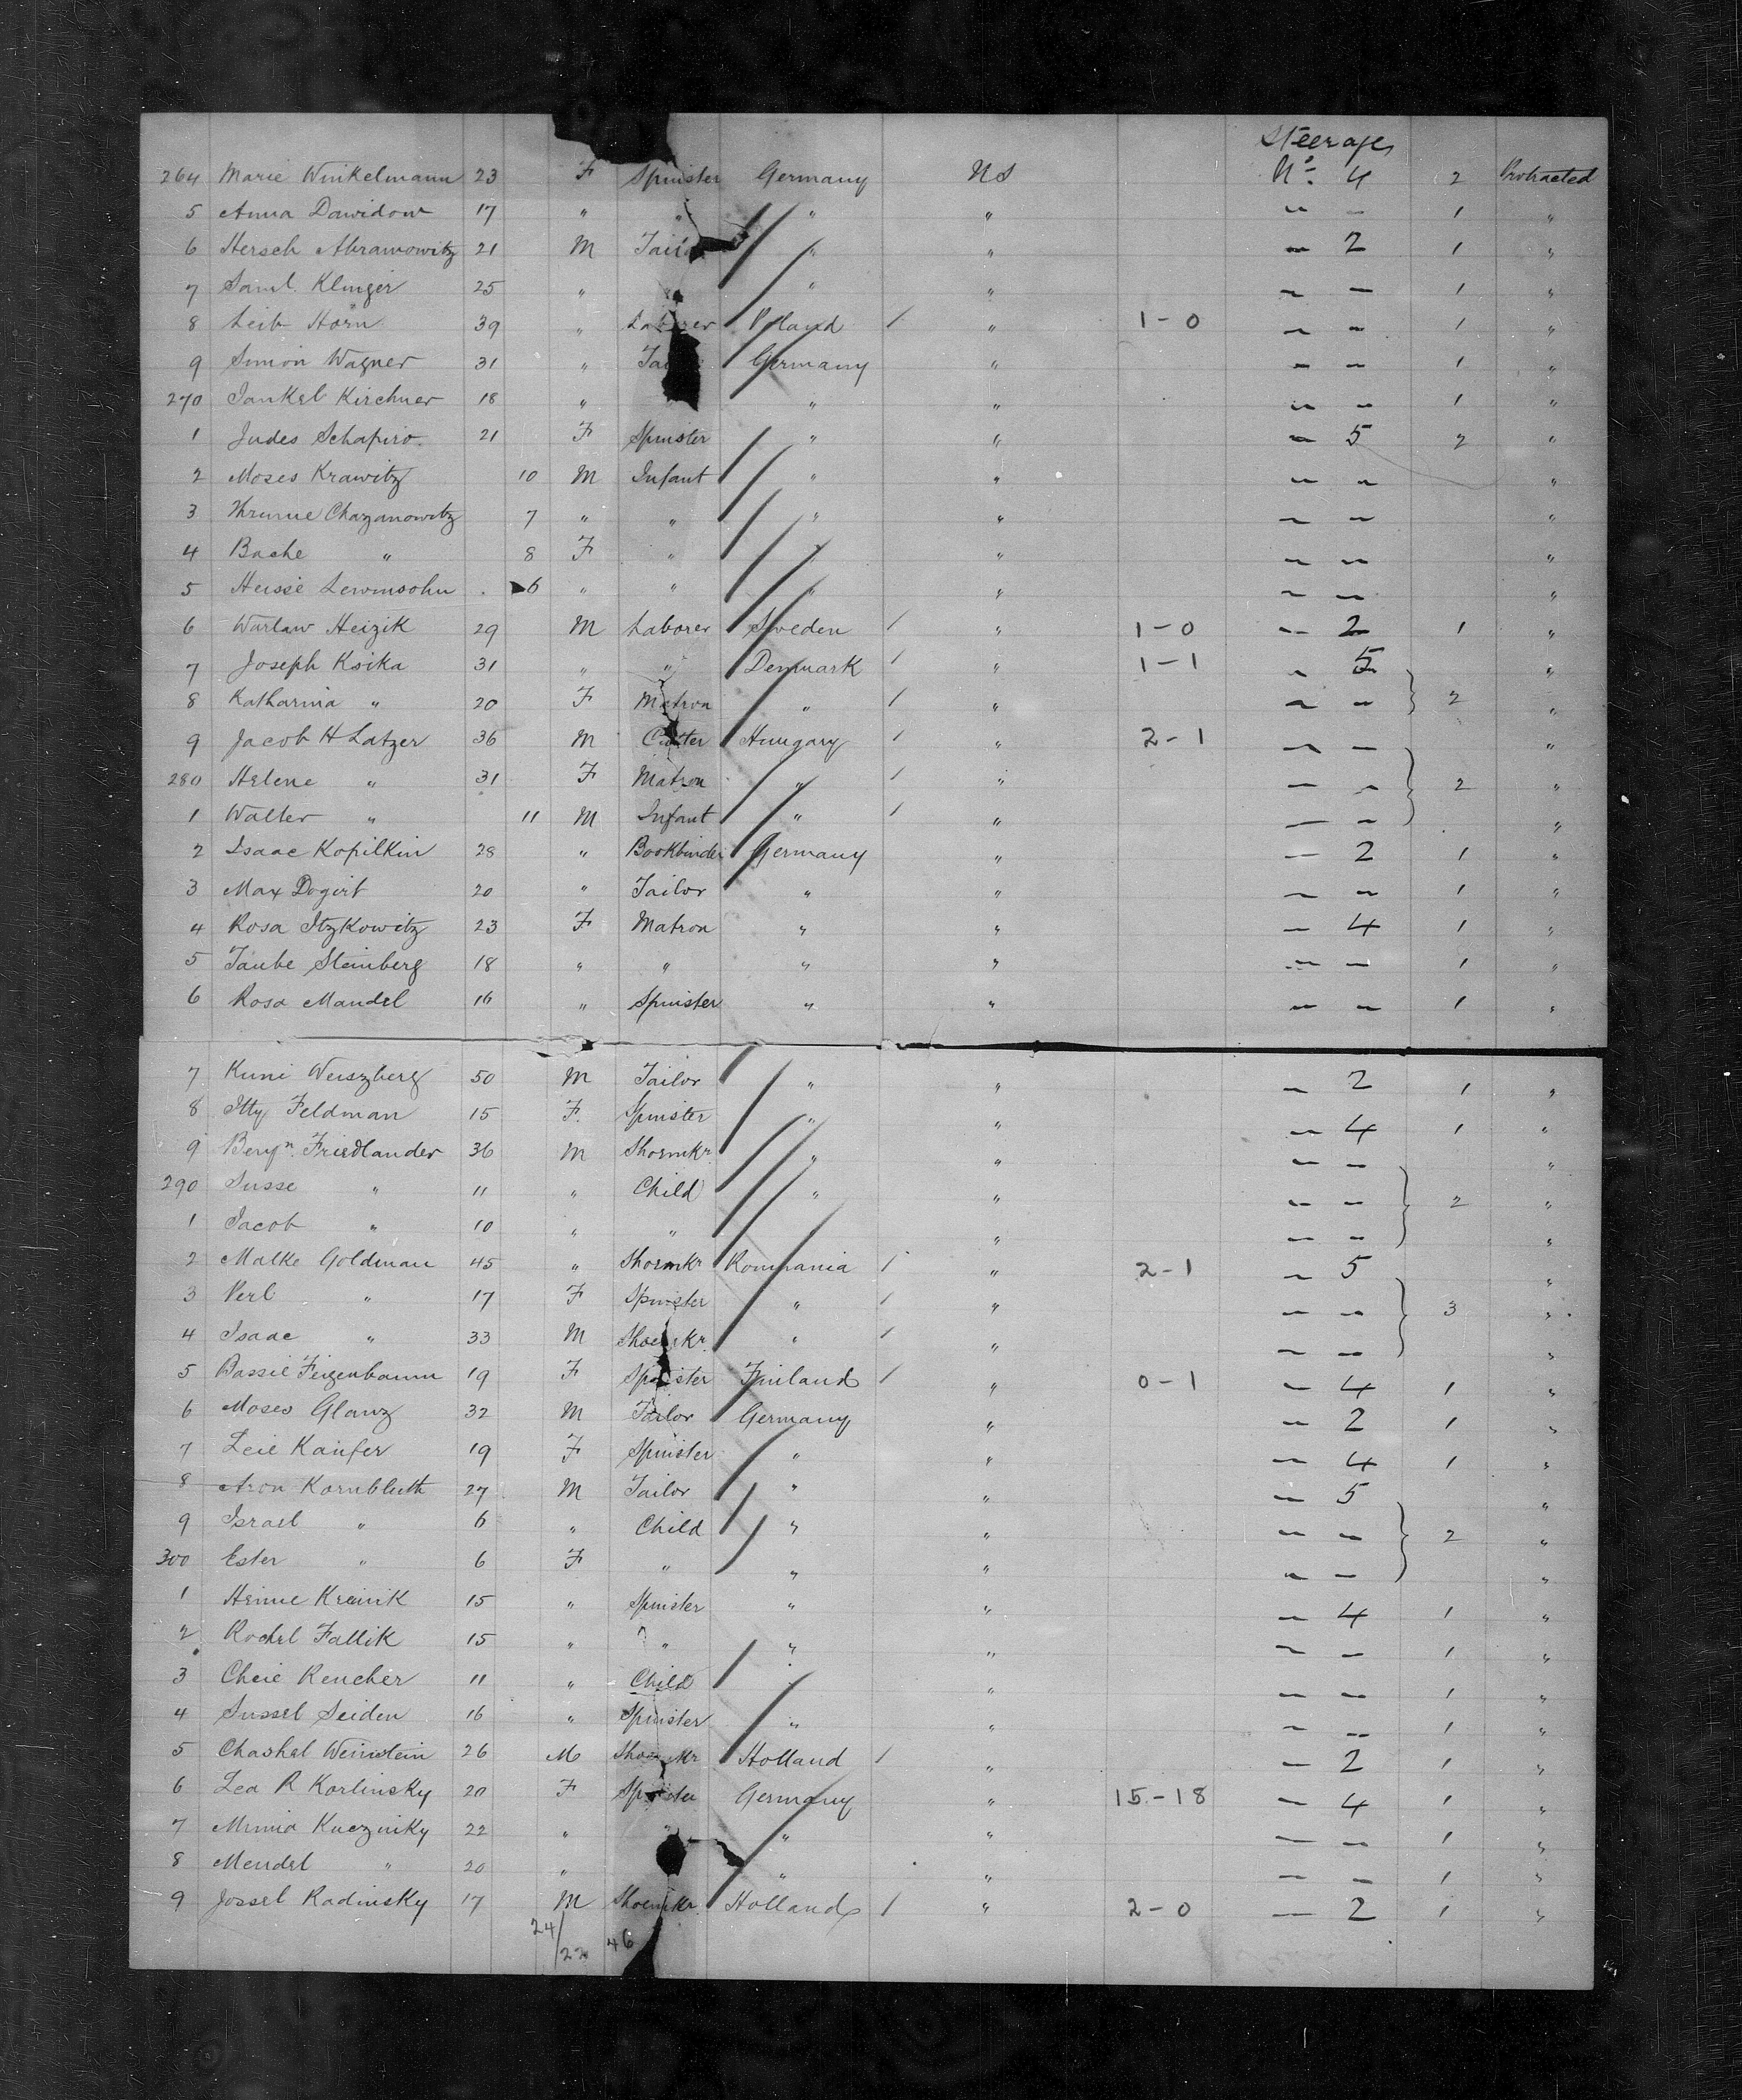 Steerage
264 Marie Winkelmann 23 F Spinster Germany US No. 4 2 Protracted
5 Anna Dawidow 17 " " " " " - 1 "
6 Hersch Abramowitz 21 M Tailor " " " 2 1 "
7 Saml. Klinger 25 " " " " - 1 "
8 Leib Horn 39 " Laborer Poland / " 1-0 " - 1 "
9 Simon Wagner 31 " Germany " " - 1 "
270 Jankel Kirchner 18 " " " " - 1 "
1 Judes Schapiro 21 F Spinster " " " 5 2 "
2 Moses Krawitz 10 M Infant " " " - "
3 Chazanowitz 7 " " " " " - "
4 Bache " 8 F " " " " - "
5 Heisse Lewinsohn 6 " " " " " - "
6 Warlaw Heizik 29 M Laborer Sweden / " 1-0 " 2 1 "
7 Joseph Ksika 31 " " Denmark / " 1-1 " 5 "
8 Katharina " 20 F Matron " / " " - } 2 "
9 Jacob H Latzer 36 M Cutter Hungary / " 2-1 " - "
280 Helene " 31 F Matron " / " " - } 2 "
1 Walter " 11 M Infant " / " " - "
2 Isaac Kopilkin 28 " Bookbinder Germany " " 2 1 "
3 Max Dogirt 20 " Tailor " " " - 1 "
4 Rosa Itzkowitz 23 F Matron " " " 4 1 "
5 Taube Steinberg 18 " " " " " - 1 "
6 Rosa Mandel 16 " Spinster " " " - 1 "
7 Kuni Weiszberg 50 M Tailor " " " 2 1 "
8 Itty Feldman 15 F. Spinster " " " 4 1 "
9 Benjn. Friedlander 36 M Shoemkr. " " " - "
290 Susse " 11 " Child " " " - } 2 "
1 Jacob " 10 " " " " - "
2 Malke Goldman 45 " Shoemkr Roumania / " 2-1 " 5 "
3 Perl " 17 F Spinster " / " " - } 3 "
4 Isaac " 33 M Shoemkr. " / " " - "
5 Bassie Feigenbaum 19 F Spinster Finland / " 0-1 " 4 1 "
6 Moses Glanz 32 M Tailor Germany " " 2 1 "
7 Leie Kaufer 19 F Spinster " " " 4 1 "
8 Aron Kornbluth 27 M Tailor " " " 5 "
9 Israel " 6 " Child " " " - } 2 "
300 Ester " 6 F " " " " - "
1 Hinne Kreinik 15 " Spinster " " " 4 1 "
2 Rochel Fallik 15 " " " " " - 1 "
3 Cheie Reucher 11 " Child " " - 1 "
4 Sussel Seiden 16 " Spinster " " " - 1 "
5 Chashel Weinstein 26 M Shoemkr Holland / " " 2 1 "
6 Lea R Korlinsky 20 F Spinster Germany " 15-18 " 4 1 "
7 Minna Kuczinsky 22 " " " " - 1 "
8 Mendel " 20 " " " " - 1 "
9 Jossel Radinsky 17 M Shoemkr. Holland / " 2-0 " 2 1 "
24/22 46